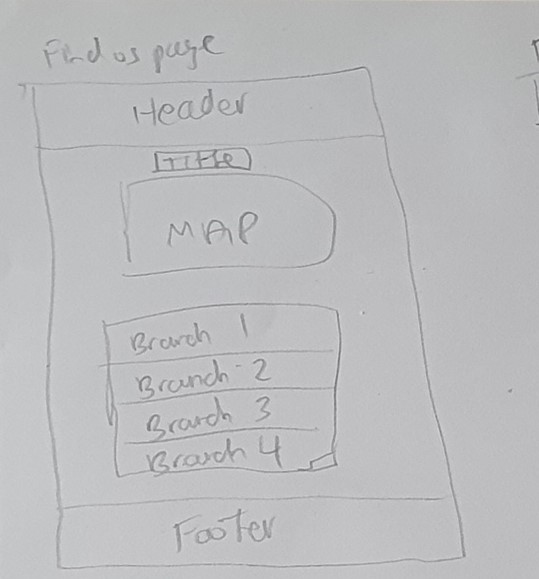 Find us page
Header
Title
MAP
Branch 1
Branch 2
Branch 3
Branch 4
Footer